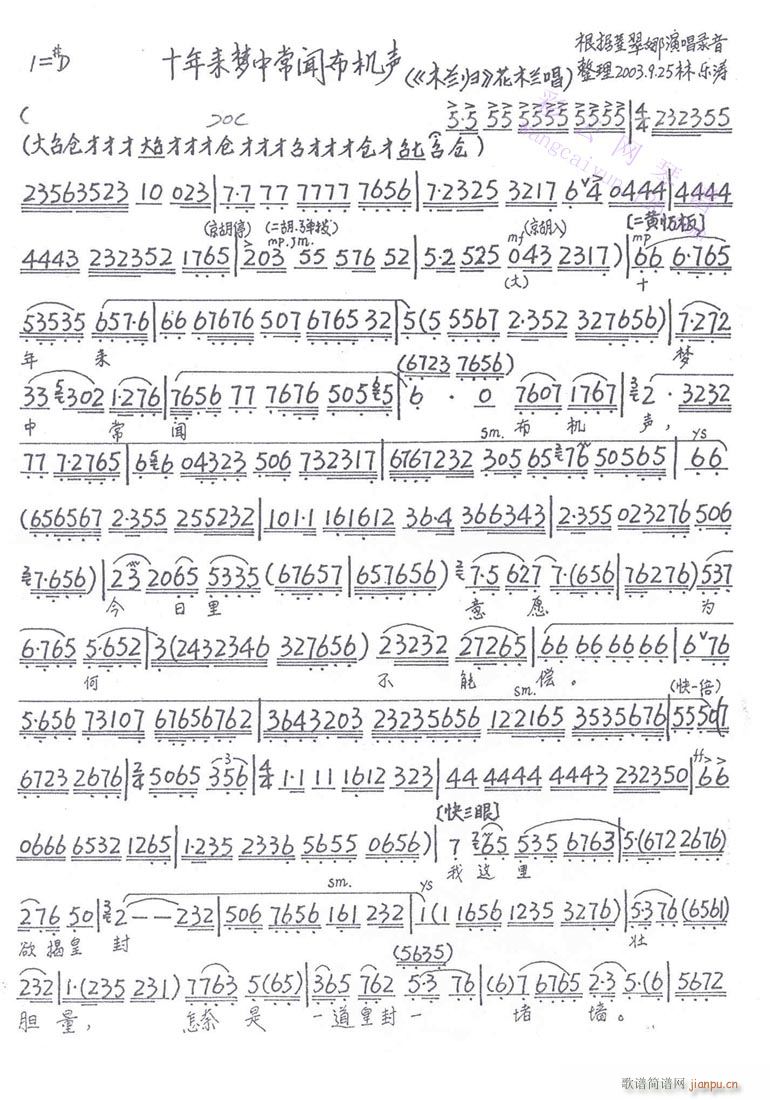 1=#D
十年来梦中常闻布机声(《木兰归》花木兰唱)
根据董翠娜演唱录音
整理2003.9.25林乐涛
5·5 55 5555 5555 | 4/4 232355
(大台仓才才才
23563523 10 023 | 7·7 77 7777 7656 | 7·2325 3217 6 4 0444 | 4444
(京胡停) (二胡、弹拨) (京胡入) [二黄恬板]
mp.jm. mf mp
4443 232352 1765 | 203 55 576 52 | 5·2 525 043 2317) | 66 6·765
(大) 十
53535 657·6 | 66 67676 507 6765 32 | 5(5 5567 2·352 327656) | 7·272
年 来 梦
(6723 7656)
33 5 302 1·276 | 7656 77 7676 505 6 5 | 6 · 0 7607 1767 | 2 · 3232
中 常 闻 布 机 声,
sm. ys
77 7·2765 | 6 6 04323 506 732317 | 6767232 305 65 76 50565 | 66
(656567 2·355 255232 | 101·1 161612 36·4 366343 | 2·355 023276 506
7·656) | 23 2065 5335 (67657 | 657656) | 7·5 627 7·(656 | 76276) 537
今 日 里 意 愿 为
6·765 5·652 | 3(2432346 327656) 23232 27265 | 66 66 66 66 | 6 76
何 不 能 偿。
sm. (快一倍)
5·656 73107 67656762 | 3643203 23235656 122165 3535676 | 5550(7
6723 2676 | 2/4 5065 356 | 4/4 1·1 11 1612 323 | 44 4444 4443 232350 | 66
[快三眼]
0666 6532 1265 | 1·235 2336 5655 0656) | 7 65 535 6763 | 5·(672 2676)
我 这 里
sm. ys
276 50 | 2 - - 232 | 506 7656 161 232 | 1(1 1656 1235 3276) | 5·376 (6561)
欲 揭 皇 封 壮
(5635)
232 | 1·(235 231) 7763 5(65) | 365 762 5·3 76 | (6)7 6765 2·3 5·(6 | 5672
胆 量, 怎奈 是 一道皇封一 堵 墙。
歌谱简谱网 jianpu.cn